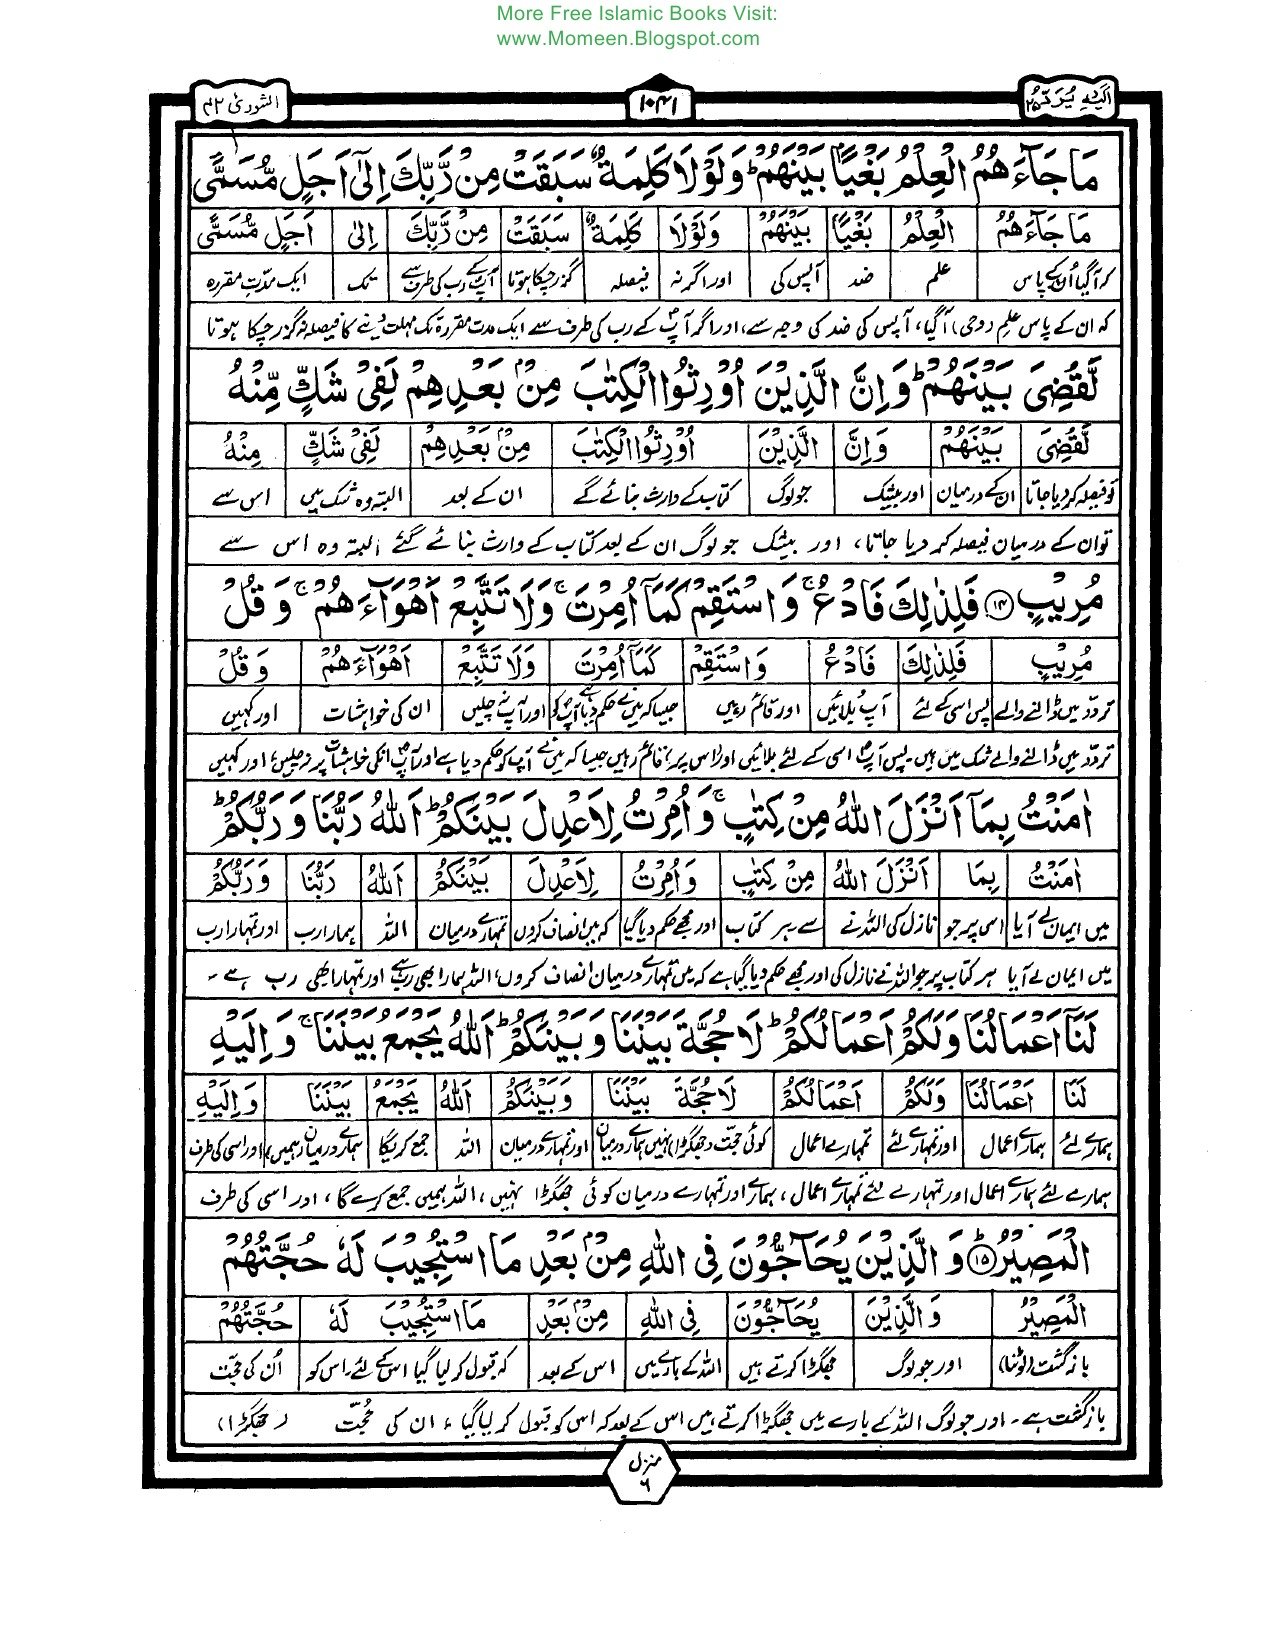 More Free Islamic Books Visit:
www.Momeen.Blogspot.com
اليه يرد ٢٥
١٠٤١
الشورىٰ ٤٢
مَا جَآءَهُمُ الْعِلْمُ بَغْيًۢا بَيْنَهُمْ ؕ وَلَوْلَا كَلِمَةٌ سَبَقَتْ مِنْ رَّبِّكَ اِلٰٓى اَجَلٍ مُّسَمًّى
مَا جَآءَهُمُ الْعِلْمُ بَغْيًۢا بَيْنَهُمْ وَلَوْلَا كَلِمَةٌ سَبَقَتْ مِنْ رَّبِّكَ اِلٰى اَجَلٍ مُّسَمًّى
کہ آگیا اُن کے پاس علم ضد آپس کی اور اگر نہ فیصلہ گزر چکا ہوتا آپؐ کے رب کی طرف سے تک ایک مدّتِ مقررہ
کہ ان کے پاس علم (وحی) آگیا، آپس کی ضد کی وجہ سے، اور اگر آپؐ کے رب کی طرف سے ایک مدت مقررہ تک مہلت دینے کا فیصلہ نہ گزر چکا ہوتا
لَّقُضِىَ بَيْنَهُمْ ؕ وَاِنَّ الَّذِيْنَ اُوْرِثُوا الْكِتٰبَ مِنْۢ بَعْدِهِمْ لَفِىْ شَكٍّ مِّنْهُ
لَّقُضِىَ بَيْنَهُمْ وَاِنَّ الَّذِيْنَ اُوْرِثُوا الْكِتٰبَ مِنْۢ بَعْدِهِمْ لَفِىْ شَكٍّ مِنْهُ
تو فیصلہ کر دیا جاتا ان کے درمیان اور بیشک جو لوگ کتاب کے وارث بنائے گئے ان کے بعد البتہ وہ شک میں اس سے
تو ان کے درمیان فیصلہ کر دیا جاتا، اور بیشک جو لوگ ان کے بعد کتاب کے وارث بنائے گئے البتہ وہ اس سے
مُرِيْبٍ ۝١٤ فَلِذٰلِكَ فَادْعُ ۚ وَاسْتَقِمْ كَمَآ اُمِرْتَ ۚ وَلَا تَتَّبِعْ اَهْوَآءَهُمْ ۚ وَقُلْ
مُرِيْبٍ فَلِذٰلِكَ فَادْعُ وَاسْتَقِمْ كَمَآ اُمِرْتَ وَلَا تَتَّبِعْ اَهْوَآءَهُمْ وَقُلْ
تردّد میں ڈالنے والے پس اسی کے لئے آپؐ بلائیں اور قائم رہیں جیسا کہ میں نے حکم دیا آپؐ کو اور آپؐ نہ چلیں ان کی خواہشات اور کہیں
تردّد میں ڈالنے والے شک میں ہیں۔ پس آپؐ اسی کے لئے بلائیں اور اس پر قائم رہیں جیسا کہ میں نے آپؐ کو حکم دیا ہے اور آپؐ انکی خواہشات پر نہ چلیں، اور کہیں
اٰمَنْتُ بِمَآ اَنْزَلَ اللّٰهُ مِنْ كِتٰبٍ ۚ وَاُمِرْتُ لِاَعْدِلَ بَيْنَكُمْ ؕ اَللّٰهُ رَبُّنَا وَرَبُّكُمْ ؕ
اٰمَنْتُ بِمَا اَنْزَلَ اللّٰهُ مِنْ كِتٰبٍ وَاُمِرْتُ لِاَعْدِلَ بَيْنَكُمْ اَللّٰهُ رَبُّنَا وَرَبُّكُمْ
میں ایمان لے آیا اس پر جو نازل کی اللہ نے سے ہر کتاب اور مجھے حکم دیا گیا کہ میں انصاف کروں تمہارے درمیان اللہ ہمارا رب اور تمہارا رب
میں ایمان لے آیا ہر کتاب پر جو اللہ نے نازل کی اور مجھے حکم دیا گیا ہے کہ میں تمہارے درمیان انصاف کروں، اللہ ہمارا بھی رب ہے اور تمہارا بھی رب ہے۔
لَنَآ اَعْمَالُنَا وَلَكُمْ اَعْمَالُكُمْ ؕ لَا حُجَّةَ بَيْنَنَا وَبَيْنَكُمْ ؕ اَللّٰهُ يَجْمَعُ بَيْنَنَا ۚ وَاِلَيْهِ
لَنَا اَعْمَالُنَا وَلَكُمْ اَعْمَالُكُمْ لَا حُجَّةَ بَيْنَنَا وَبَيْنَكُمْ اَللّٰهُ يَجْمَعُ بَيْنَنَا وَاِلَيْهِ
ہمارے لئے ہمارے اعمال اور تمہارے لئے تمہارے اعمال کوئی حجت (جھگڑا) نہیں ہمارے درمیان اور تمہارے درمیان اللہ جمع کریگا ہمارے درمیان (ہمیں) اور اسی کی طرف
ہمارے لئے ہمارے اعمال اور تمہارے لئے تمہارے اعمال، ہمارے اور تمہارے درمیان کوئی جھگڑا نہیں، اللہ ہمیں جمع کرے گا، اور اسی کی طرف
الْمَصِيْرُ ؕ۝١٥ وَالَّذِيْنَ يُحَآجُّوْنَ فِى اللّٰهِ مِنْۢ بَعْدِ مَا اسْتُجِيْبَ لَهٗ حُجَّتُهُمْ
الْمَصِيْرُ وَالَّذِيْنَ يُحَآجُّوْنَ فِى اللّٰهِ مِنْۢ بَعْدِ مَا اسْتُجِيْبَ لَهٗ حُجَّتُهُمْ
بازگشت (لوٹنا) اور جو لوگ جھگڑا کرتے ہیں اللہ کے بارے میں اس کے بعد کہ قبول کر لیا گیا اس کے لئے۔ اس کو اُن کی حجّت
بازگشت ہے۔ اور جو لوگ اللہ کے بارے میں جھگڑا کرتے ہیں اس کے بعد کہ اس کو قبول کر لیا گیا، ان کی حُجّت (جھگڑا)
منزل ٦